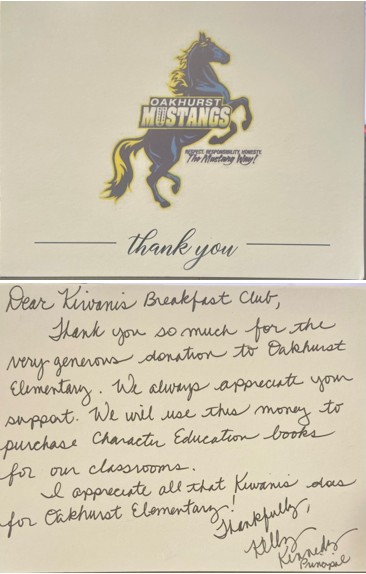 OAKHURST
MUSTANGS
RESPECT. RESPONSIBILITY. HONESTY.
The Mustang Way!
thank you
Dear Kiwanis Breakfast Club,
Thank you so much for the
very generous donation to Oakhurst
Elementary. We always appreciate your
support. We will use this money to
purchase Character Education books
for our classrooms.
I appreciate all that Kiwanis does
for Oakhurst Elementary!
Thankfully,
Kelly
Kennedy
Principal